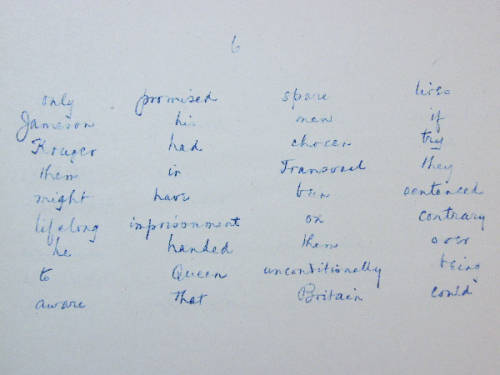 6
only promised spare lives
Jameson his men if
Kruger had chosen try
them in Transvaal they
might have been sentenced
lifelong imprisonment on contrary
he handed them over
to Queen unconditionally being
aware that Britain could